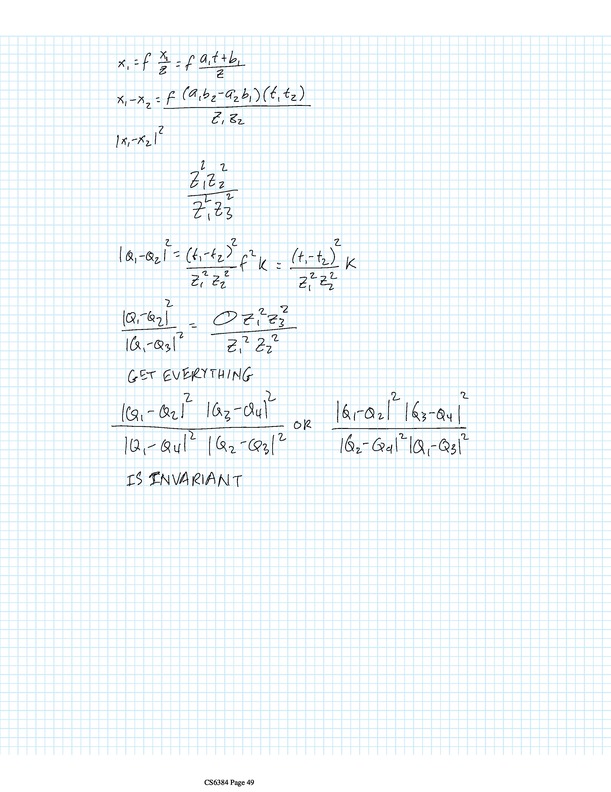 x₁ = f x₁/z = f (a₁t+b₁)/z
x₁-x₂ = f (a₁b₂-a₂b₁)(t₁t₂) / z₁z₂
|x₁-x₂|²
z₁²z₂² / z₁²z₃²
|Q₁-Q₂|² = (t₁-t₂)²/(z₁²z₂²) f²K = (t₁-t₂)²/(z₁²z₂²) K
|Q₁-Q₂|² / |Q₁-Q₃|² = O z₁²z₃² / z₁²z₂²
GET EVERYTHING
|Q₁-Q₂|² |Q₃-Q₄|² / |Q₁-Q₄|² |Q₂-Q₃|² OR |Q₁-Q₂|² |Q₃-Q₄|² / |Q₂-Q₄|² |Q₁-Q₃|²
IS INVARIANT
CS6384 Page 49